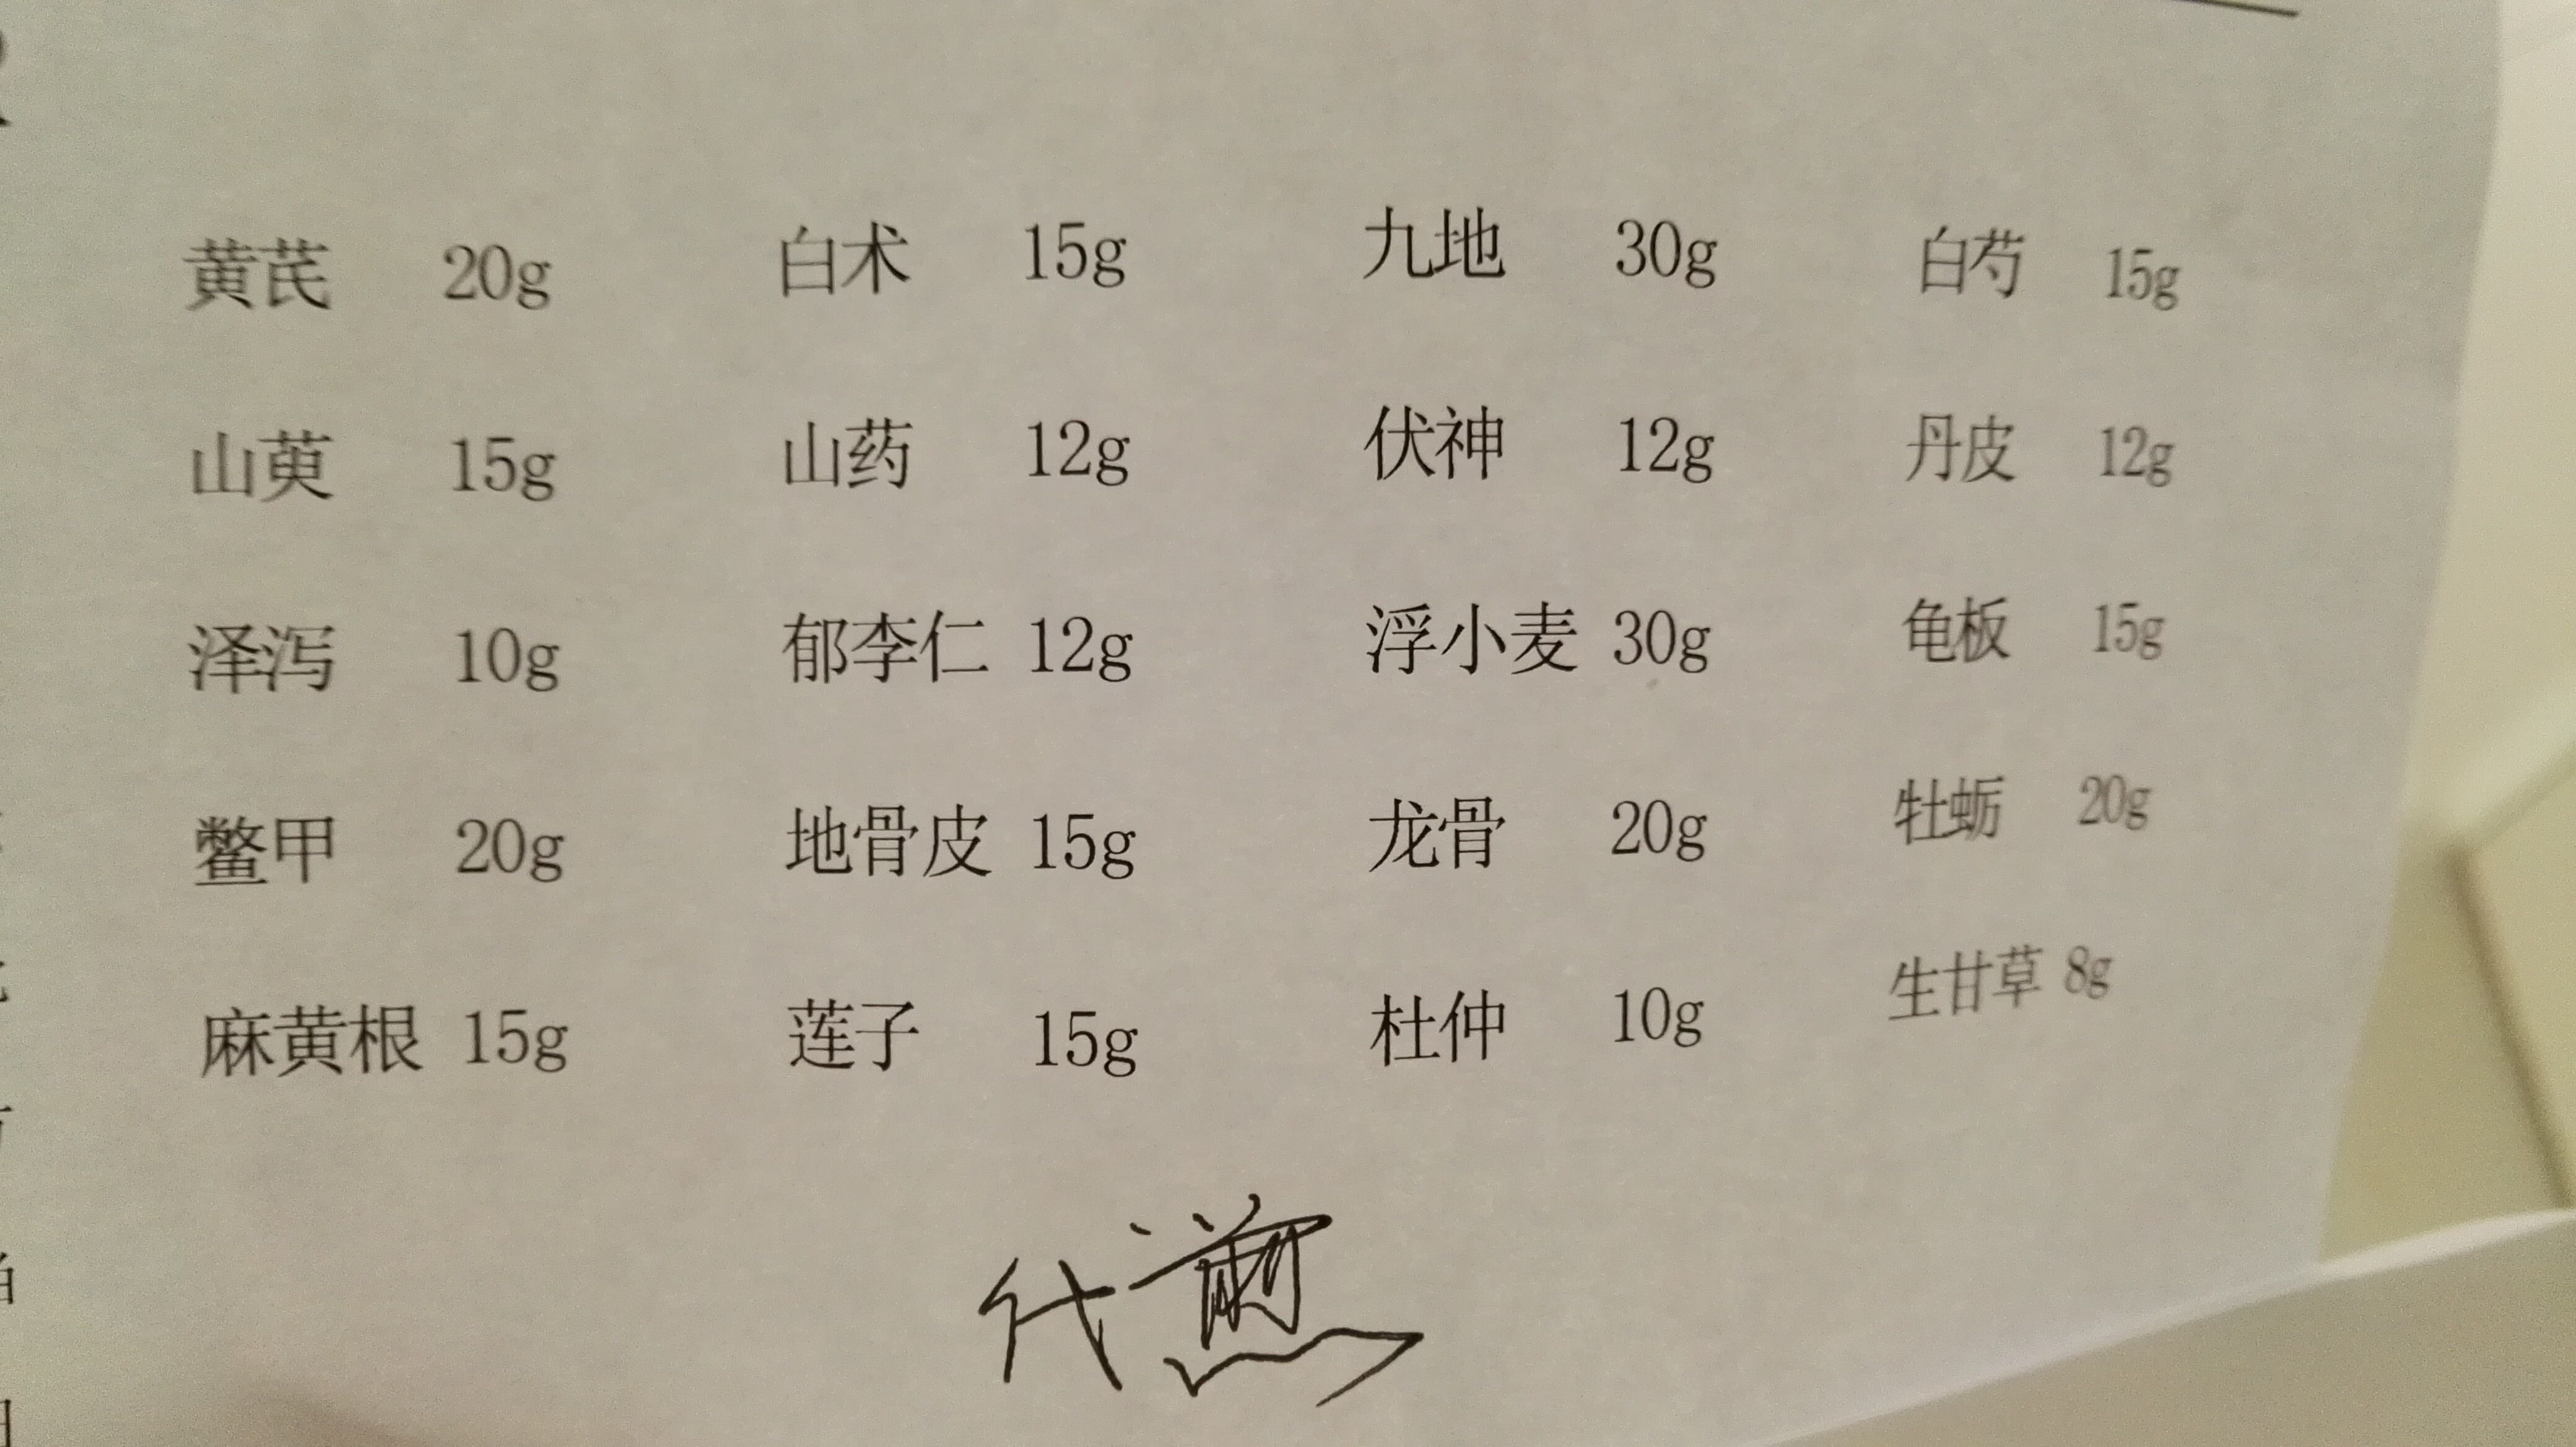 黄芪 20g 白术 15g 九地 30g 白芍 15g
山萸 15g 山药 12g 伏神 12g 丹皮 12g
泽泻 10g 郁李仁 12g 浮小麦 30g 龟板 15g
鳖甲 20g 地骨皮 15g 龙骨 20g 牡蛎 20g
麻黄根 15g 莲子 15g 杜仲 10g 生甘草 8g
代煎